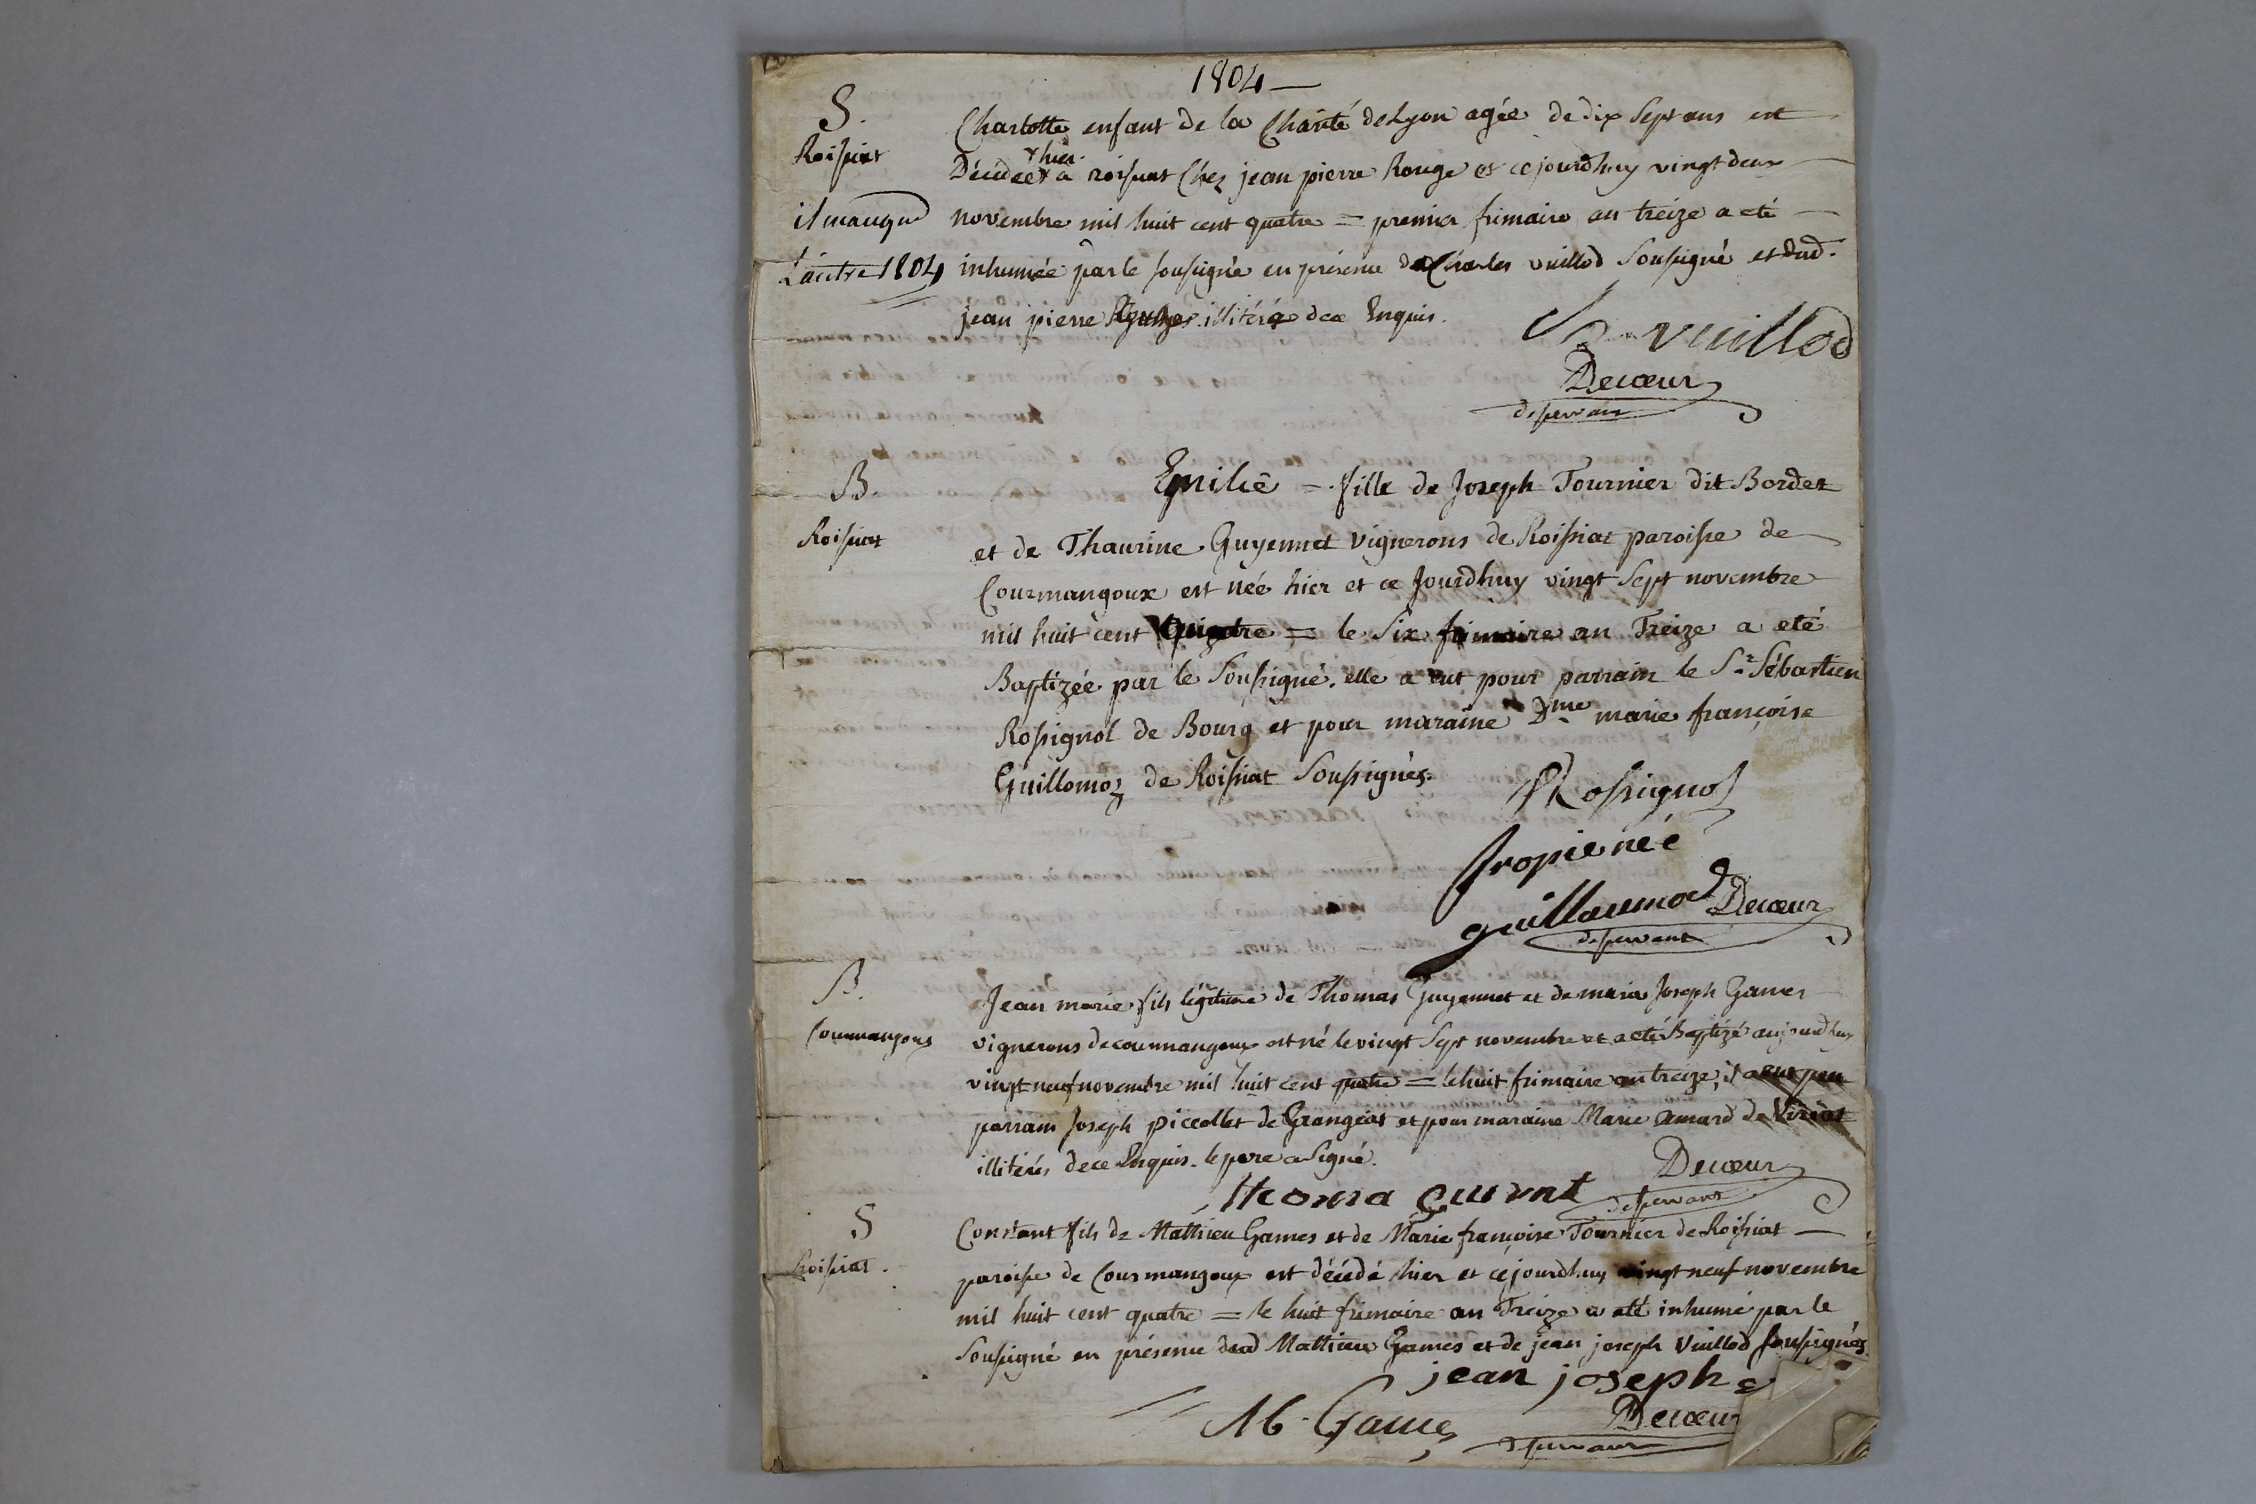 1804 —
S.
Roissiat
il manque
L'autre 1804
Charlotte enfant de la Charité de Lyon agée de dix Sept ans est
Décédée + hier à roissiat Chez jean pierre Rouge et ce jourdhuy vingt deux
novembre mil huit cent quatre = premier frimaire an treize a eté
inhumée par le soussigné en présence de Charles vuillod Soussigné et dud.
jean pierre Rouge illitéré de ce Enquis.
vuillod
Decœur
desservant
B.
Roissiat
Emilie = fille de Joseph Tournier dit Bordet
et de Thaurine Guyennet vignerons de Roissiat paroisse de
Courmangoux est née hier et ce Jourdhuy vingt Sept novembre
mil huit cent quatre = le Six frimaire an Treize a eté
Baptizée par le Soussigné. elle a eut pour parrain le Sr Sébastien
Rossignol de Bourg et pour maraine Dme marie françoise
Guillomoz de Roissiat Soussignés.
Rossignol
guillaumod
Decœur
desservant
B.
Courmangoux
Jean marie fils légitime de Thomas Guyennet et de marie Joseph Games
vignerons de courmangoux est né le vingt Sept novembre et a eté Baptizé aujourdhuy
vingt neuf novembre mil huit cent quatre = le huit frimaire an treize, il a eut pour
parrain Joseph piccollet de Grangeat et pour maraine Marie amard de Viriat
illitérés de ce Enquis. le pere a Signé.
Decœur
desservant
S
Roissiat.
Constant fils de Mathieu Games et de Marie françoise Tournier de Roissiat —
paroisse de Courmangoux est décédé hier et ce jourdhuy vingt neuf novembre
mil huit cent quatre = le huit frimaire an Treize a eté inhumé par le
Soussigné en présence dud Mathieu Games et de jean joseph Vuillod Soussignés
jean joseph
M. Games
Decœur
desservant